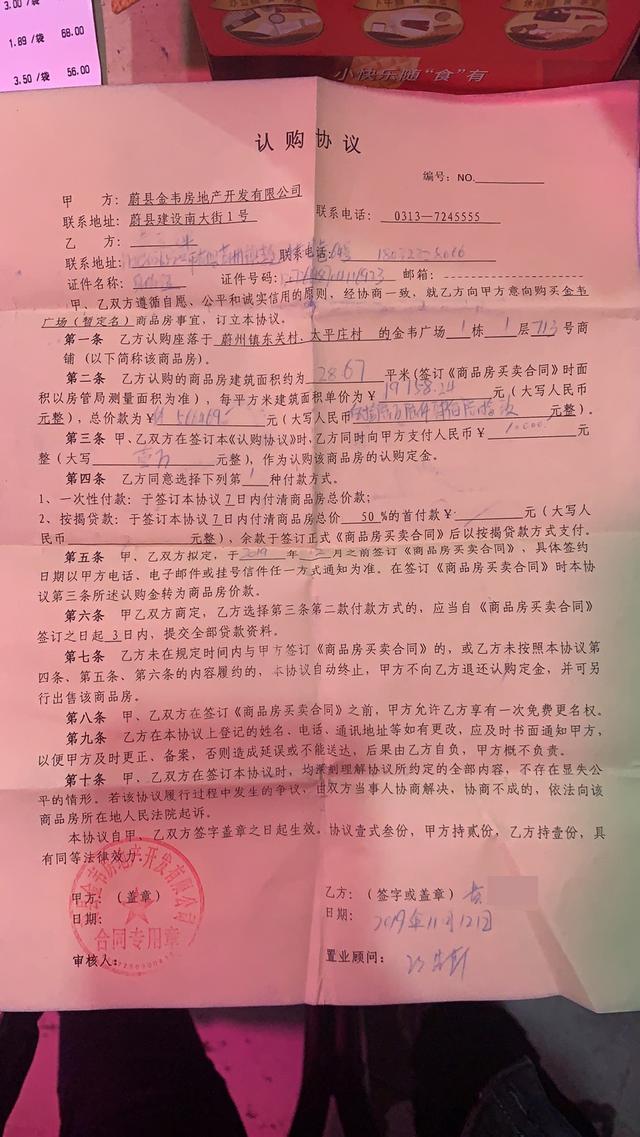 3.00 /袋
1.89 /袋 68.00
3.50 /袋 56.00
小快乐随“食”有
认购协议
编号：NO.
甲 方：蔚县金韦房地产开发有限公司
联系地址：蔚县建设南大街1号 联系电话：0313—7245555
乙 方：
联系地址： 联系电话：
证件名称： 证件号码： 邮箱：
甲、乙双方遵循自愿、公平和诚实信用的原则，经协商一致，就乙方向甲方意向购买金韦
广场（暂定名）商品房事宜，订立本协议。
第一条 乙方认购座落于 蔚州镇东关村、太平庄村 的金韦广场 1 栋 1 层 713 号商
铺（以下简称该商品房）。
第二条 乙方认购的商品房建筑面积约为 28.67 平米(签订《商品房买卖合同》时面
积以房管局测量面积为准），每平方米建筑面积单价为￥ 19158.24 元（大写人民币
元整），总价款为￥ 元（大写人民币 元整）。
第三条 甲、乙双方在签订本《认购协议》时，乙方同时向甲方支付人民币￥ 10000. 元
整（大写 壹万 元整），作为认购该商品房的认购定金。
第四条 乙方同意选择下列第 1 种付款方式。
1、一次性付款：于签订本协议 7 日内付清商品房总价款；
2、按揭贷款：于签订本协议 7 日内付清商品房总价 50 %的首付款￥ 元（大写人
民币 元整），余款于签订正式《商品房买卖合同》后以按揭贷款方式支付。
第五条 甲、乙双方拟定，于 2019 年 12 月之前签订《商品房买卖合同》，具体签约
日期以甲方电话、电子邮件或挂号信件任一方式通知为准。在签订《商品房买卖合同》时本协
议第三条所述认购金转为商品房价款。
第六条 甲乙双方商定，乙方选择第三条第二款付款方式的，应当自《商品房买卖合同》
签订之日起 3 日内，提交全部贷款资料。
第七条 乙方未在规定时间内与甲方签订《商品房买卖合同》的，或乙方未按照本协议第
四条、第五条、第六条的内容履约的，本协议自动终止，甲方不向乙方退还认购定金，并可另
行出售该商品房。
第八条 甲、乙双方在签订《商品房买卖合同》之前，甲方允许乙方享有一次免费更名权。
第九条 乙方在本协议上登记的姓名、电话、通讯地址等如有更改，应及时书面通知甲方，
以便甲方及时更正、备案，否则造成延误或不能送达，后果由乙方自负，甲方概不负责。
第十条 甲、乙双方在签订本协议时，均深刻理解协议所约定的全部内容，不存在显失公
平的情形。若该协议履行过程中发生的争议，由双方当事人协商解决，协商不成的，依法向该
商品房所在地人民法院起诉。
本协议自甲、乙双方签字盖章之日起生效。协议壹式叁份，甲方持贰份，乙方持壹份，具
有同等法律效力。
甲方：（盖章） 乙方：（签字或盖章）
日期： 日期：2019年11月12日
审核人： 置业顾问：
金韦房地产开发有限公司
合同专用章